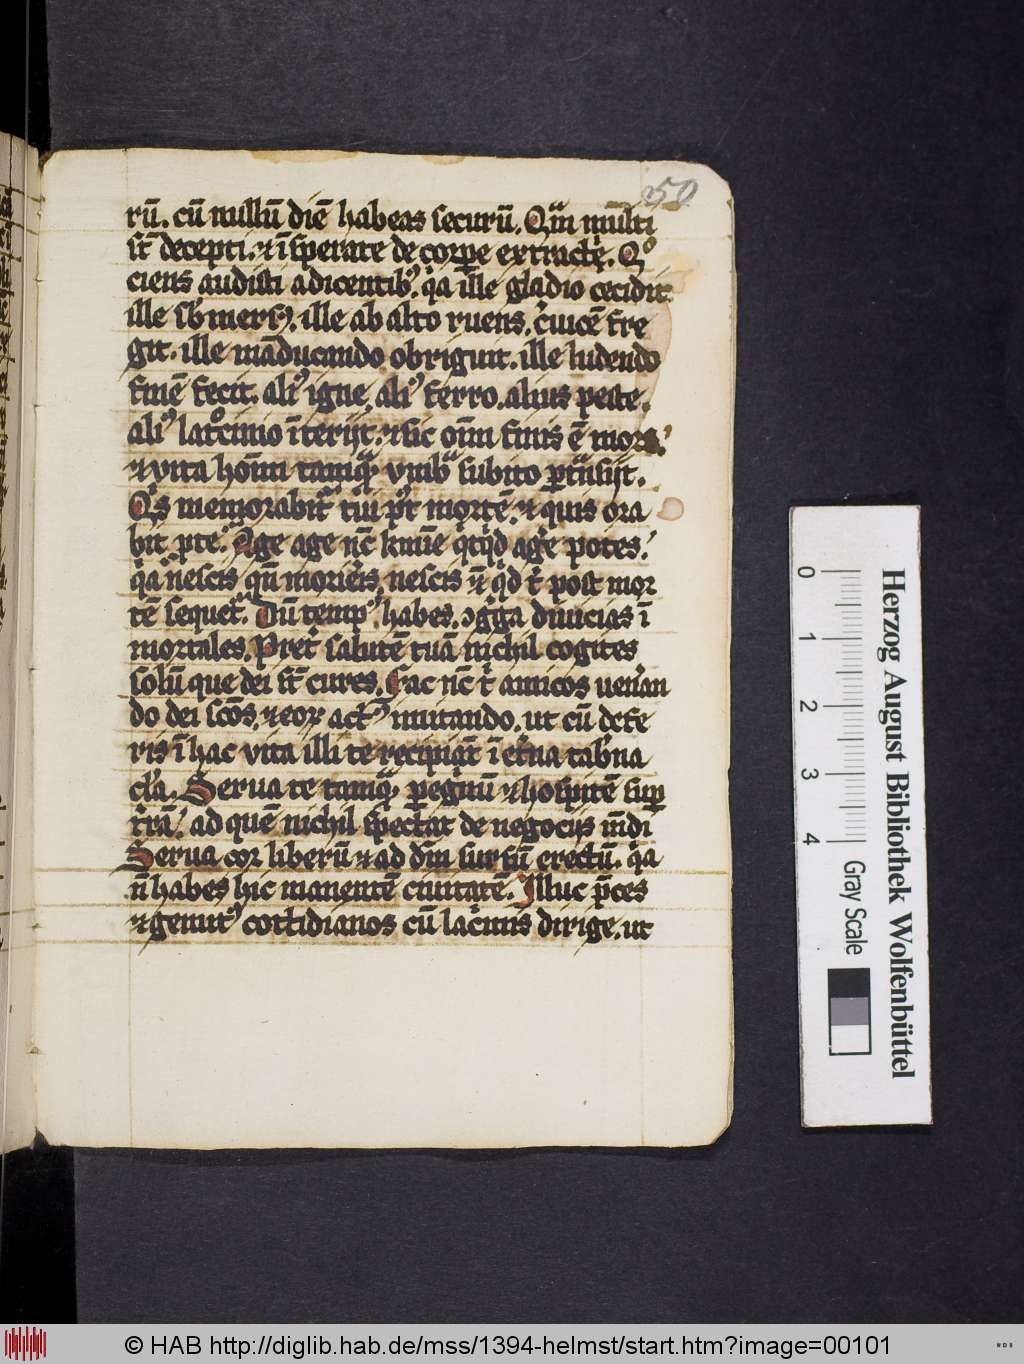 50
rū. cū nullū diē habeas securū. Qm̄ multi
st̄ decepti. ⁊ īsperate de corꝑe extracti. Qͦ
ciens audisti a dicentibꝰ. qͥa ille gladio cecidit
ille sb̄mersꝰ. ille ab alto ruens. cͥuicē fre
git. ille māducando obriguit. ille ludendo
finē fecit. aliꝰ igne. aliꝰ ferro. alius peste.
aliꝰ latͦcinio īterijt. ⁊ sic oīm finis ē mors.
⁊ vita hoīm tamqᷓ vmbᷓ subito ꝑtᷓnsijt.
Qͥs memorabitᷣ tui pꝰt mortē. ⁊ quis ora
bit ꝓ te. Age age nc̄ kmē qͥcqͥd age̾ potes.
qͥa nescis qn̄ morie̾is nescis ⁊ qͥd tͥ post mor
tē sequetᷣ. Dū tempꝰ habes. ꝯgͤga diuicias ī
mortales. Pret̾ salutē tuā nichil cogites
solū que dei st̄ cures. Fac nc̄ tͥ amicos uene̾an
do dei scōs. ⁊ eoꝝ actꝰ imitando. ut cū defe
ris ī hac vita illi te recipiāt ī et̾na tab̾na
cl̾a. Serua te tamqᷓ ꝑegͥnū ⁊ hospitē suꝑ
tr̄ā. ad quē nichil spectāt de negocijs mūdi
Serua cor liberū ⁊ ad dm̄ sursū erectū. qͥa
n̄ habes hic manentē ciuitatē. Illuc p̄ces
⁊ gemitꝰ cottidianos cū lacͥmis dirige. ut
Herzog August Bibliothek Wolfenbüttel
0 1 2 3 4
Gray Scale
© HAB http://diglib.hab.de/mss/1394-helmst/start.htm?image=00101